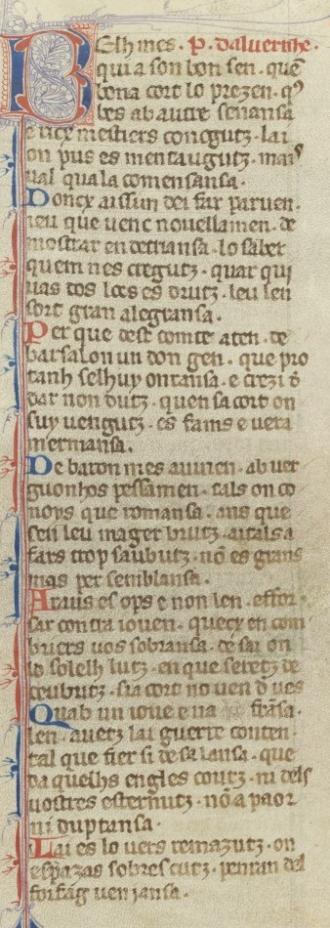 BElh mes. P. daluernhe.
qui a son bon sen. quē
bona cort lo prezen. qͣ
bes ab autre senansa
e ricx mestiers conogutz. lai
on pus es mentaugutz. mai
ual qual a comensansa.
Doncx aissim dei far paruen.
ieu que uenc nouellamen. de
mostrar en detriansa. lo saber
quem nes cregutz. quar qui
uas tos locs es drutz. leu len
sort gran alegransa.
Per que dest comte aten. de
barsalon un don gen. que pro
tanh selhuy ontansa. e crezi
dar non dutz. quen sa cort on
suy uengutz. es fams e uera
mermansa.
De baron mes auinen. ab uer
guonhos pessamen. tals on co
noys que romansa. ans que
sen leu mager brutz. aitals a
fars trop saubutz. nō es grans
mas per semblansa.
Ara us es ops e non len. effor
sar contra iouen. quecx en com
bucrs uos sobransa. de sai on
lo solelh lutz. en que seretz de
ceubutz. sia cort no uen d ues
Quab un ioue e ua fransa.
len. auetz lai guerra conten.
tal que fier si de sa lansa. que
da quelhs engles coutz. ni dels
uostres esternutz. nō a paor
ni duptansa.
Lai es lo uers remazutz. on
espazas sobrescutz. penran del
forfag uenjansa.